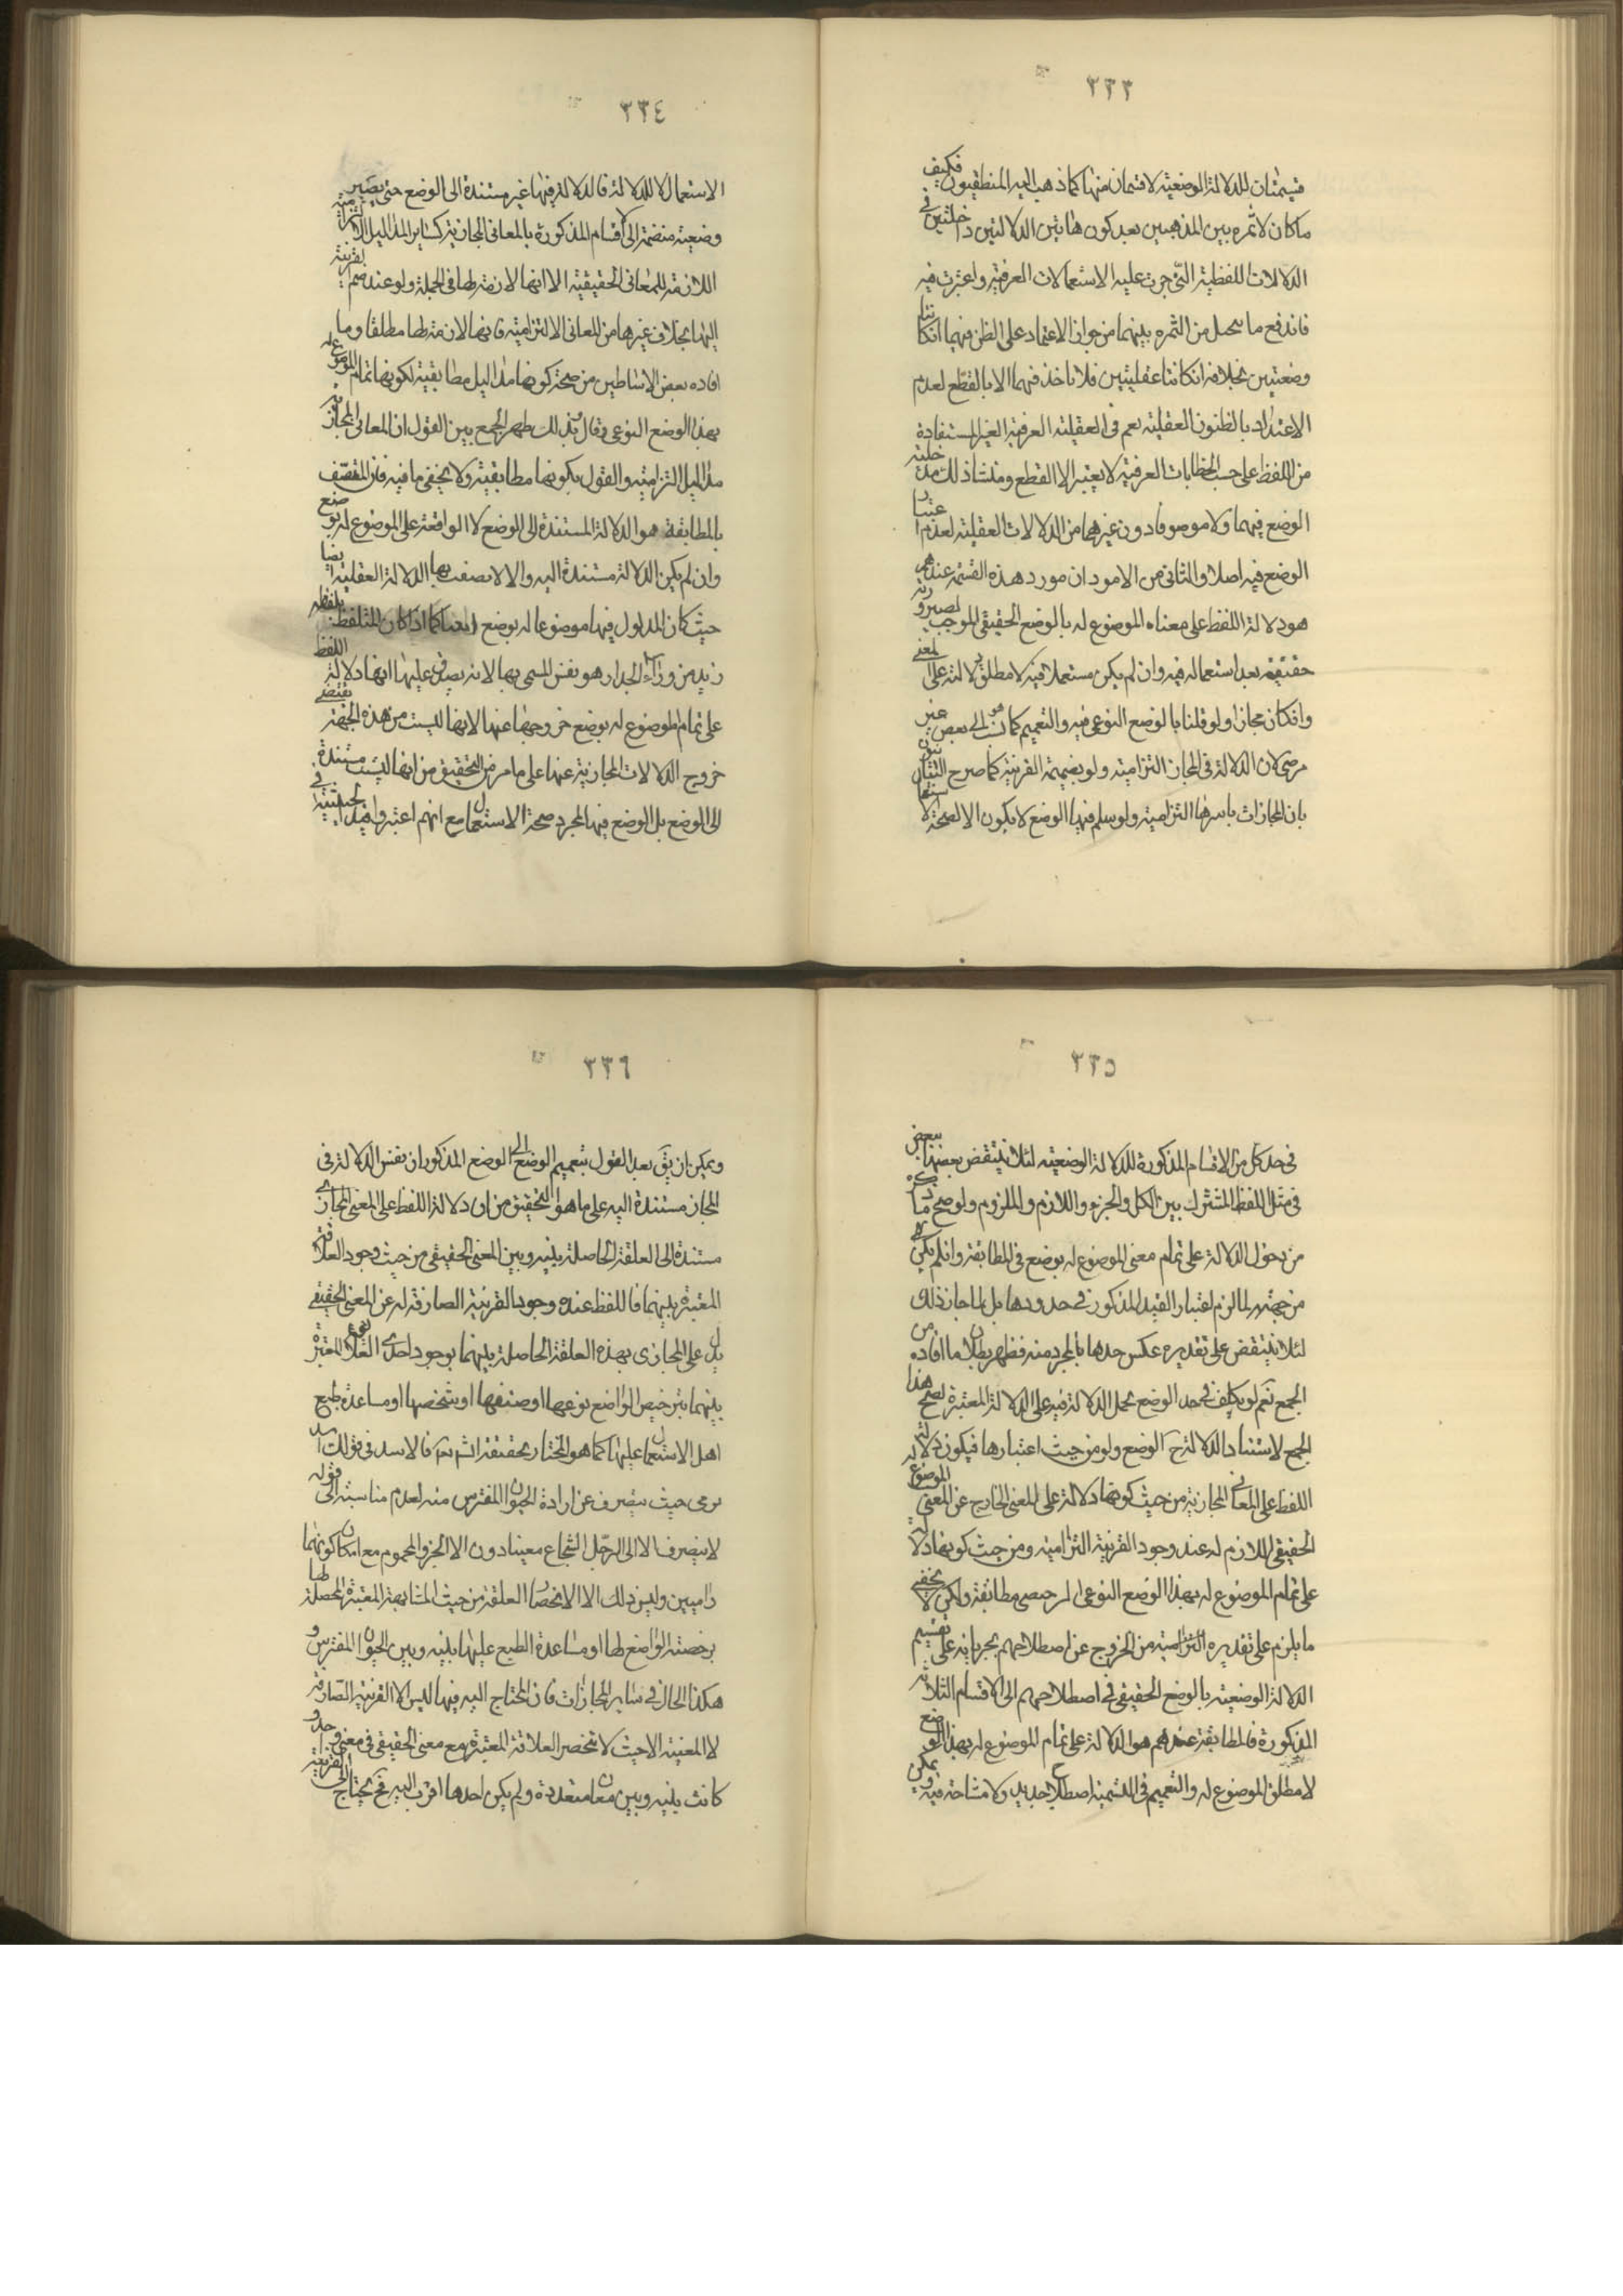 ٣٣٣
قسيمتان للدلالة الوضعية لا قسمان منها كما ذهب اليه المنطقيون فكيف
ما كان لا ثمره بين المذهبين بعد كون هاتين الدلالتين داخلتين في
الدلالات اللفظية التي جرت عليه الاستعمالات العرفية واعتبرت فيه
فاندفع ما يتحمل من الثمره بينهما من جواز الاعتماد على الظن فيهما ان كانتا
وضعيتين بخلافه ان كانتا عقليتين فلا ناخذ فيهما الا بالقطع لعدم
الاعتداد بالظنون العقلية نعم في العقلية العرفية الغير المستفادة
من اللفظ على حسب الخطابات العرفية لا يعتبر الا القطع ومنشأ ذلك مدخلية
الوضع فيهما ولو موصوفا دون غيرهما من الدلالات العقلية لعدم اعتبار
الوضع فيه اصلا والثانى من الامور ان مورد هذه القسمة عندهم
هو دلالة اللفظ على معناه الموضوع له بالوضع الحقيقي الموجب لصيرورته
حقيقة بعد استعماله فيه وان لم يكن مستعملا فيه لا مطلق دلالته على المعنى
وان كان مجازا ولو قلنا بالوضع النوعي فيه والتعميم كما نسب الى بعض هو غير
مرضى لان الدلالة في المجاز التزامية ولو بضميمة القرينة كما صرح
بان المجازات باسرها التزامية ولو سلم فيها الوضع لا يكون الا لصحة
٣٣٤
الاستعمال لا للدلالة فالدلالة فيها غير مستندة الى الوضع حتى يصير
وضعية منضمة الى اقسام المذكورة بالمعانى المجازية كساير المداليل الالتزامية
اللازمة للمعانى الحقيقية الا انها لازمة لها فى الجملة ولو عند ضم القرينة
اليها بخلاف غيرها من المعانى الالتزامية فانها لازمة لها مطلقا وما
افاده بعض الاساطين من صحة كونها مداليل مطابقية لكونها تمام الموضوع له
بهذا الوضع النوعى وقال بذلك يظهر الجمع بين القول ان المعانى المجازية
مداليل التزامية والقول بكونها مطابقية ولا يخفى ما فيه فان المتصف
بالمطابقة هو الدلالة المستندة الى الوضع لا الواقعة على الموضوع له بوضع
وان لم يكن الدلالة مستندة اليه والا لاتصفت بها الدلالة العقلية ايضا
حيث كان المدلول فيها موضوعا له بوضع ايضا كما اذا كان المتلفظ بلفظه
زيد من وراء الجدار هو نفس المسمى بها لانه يصدق عليها انها دلالة اللفظ
على تمام الموضوع له بوضع خروجها عنها لانها ليست من هذه الجهة يقتضى
خروج الدلالات المجازية عنها على ما مر من التحقيق من انها ليست مستندة
الى الوضع بل الوضع فيها لمجرد صحة الاستعمال مع انهم اعتبروا قيد الحيثية في
٣٣٥
فى حد كل من الاقسام المذكورة للدلالة الوضعية لئلا ينتقض بعضها ببعض
في مثل اللفظ المشترك بين الكل والجزء واللازم والملزوم ولو صح ما ذكره
من دخول الدلالة على تمام معنى الموضوع له بوضع فى المطابقة وان لم يكن
من جهته لما لزم اعتبار القيد المذكور فى حدودها بل لما جاز ذلك
لئلا ينتقض على تقديره عكس حدها بالمجرد منه فظهر بطلان ما افاده من
الجمع نعم لو يكلف فى حد الوضع بحمل الدلالة فيه على الدلالة المعتبرة لصح هذا
الجمع لاستناد الدلالة ح الوضع ولو من حيث اعتبارها فيكون دلالة
اللفظ على المعانى المجازية من حيث كونها دلالة على المعنى الخارج عن المعنى الموضوع له
الحقيقي اللازم له عند وجود القرينة التزامية ومن حيث كونها دلالة
على تمام الموضوع له بهذا الوضع النوعى مطابقة ولكن لا يخفى
ما يلزم على تقديره التزامية من الخروج عن اصطلاحهم بجريانه على تقسيم
الدلالة الوضعية بالوضع الحقيقي فى اصطلاحهم الى الاقسام الثلاثة
المذكورة فالمطابقة عندهم هو الدلالة على تمام الموضوع له بهذا الوضع
لا مطلق الموضوع له والتعميم فى التسمية اصطلاح جديد ولا مشاحة فيه ويمكن
٣٣٦
ويمكن ان يق بعد القول بتعميم الوضع الى الوضع المذكور ان نفس الدلالة فى
المجاز مستندة اليه على ما هو التحقيق من ان دلالة اللفظ على المعنى المجازى
مستندة الى العلقة الحاصلة بينه وبين المعنى الحقيقى من حيث وجود العلاقة
المعتبرة بينهما فاللفظ عنده وجود القرينة الصارفة له عن المعنى الحقيقى
يدل على المجازى بهذه العلقة الحاصلة بينهما بوجود احدى العلائق المعتبرة
بينهما بترخيص الواضع نوعها او صنفها او شخصها او مساعدة طبع
اهل الاستعمال عليها كما هو المختار تحقيقه انش تع فالاسد فى قولك اسد
يرمى حيث يصرف عن ارادة الحيوان المفترس منه لعدم مناسبة الى قوله
لا ينصرف الا الى الرجل الشجاع معينا دون الابخر والمحموم مع امكان كونهما
راميين وليس ذلك الا لانحصار العلقة من حيث المشابهة المعتبرة المحصلة لها
برخصة الواضع لها او مساعدة الطبع عليها بينه وبين الحيوان المفترس و
هكذا الحال فى ساير المجازات فان المحتاج اليه فيها ليس الا القرينة الصارفة
لا المعينة الا حيث لا تنحصر العلاقة المعتبرة مع معنى الحقيقى فى معنى واحد و
كانت بينه وبين معان متعددة ولم يكن احدها اقرب اليه فح يحتاج الى القرينة